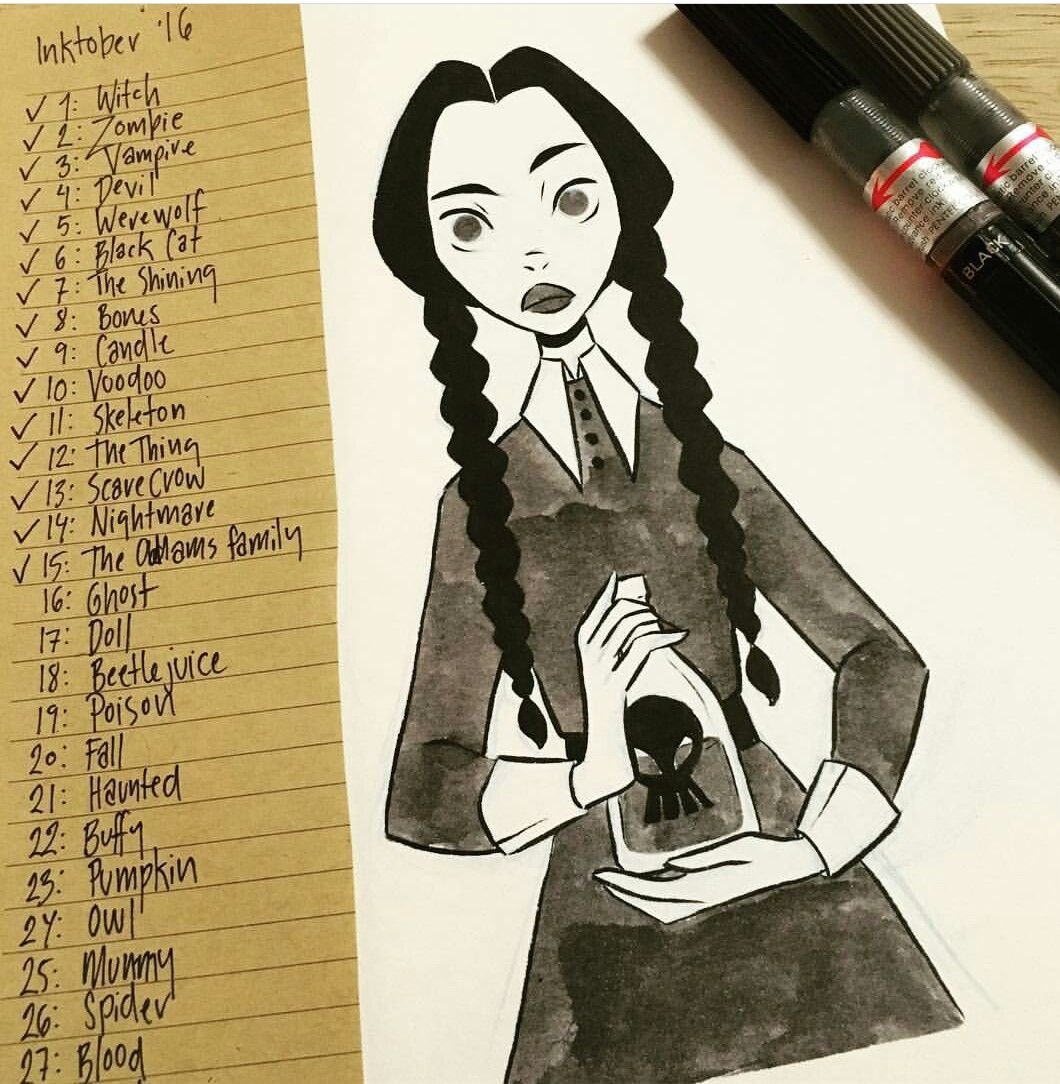 Inktober '16
✓ 1: Witch
✓ 2: Zombie
✓ 3: Vampire
✓ 4: Devil
✓ 5: Werewolf
✓ 6: Black Cat
✓ 7: The Shining
✓ 8: Bones
✓ 9: Candle
✓ 10: Voodoo
✓ 11: Skeleton
✓ 12: The Thing
✓ 13: Scarecrow
✓ 14: Nightmare
✓ 15: The Addams family
16: Ghost
17: Doll
18: Beetlejuice
19: Poison
20: Fall
21: Haunted
22: Buffy
23: Pumpkin
24: Owl
25: Mummy
26: Spider
27: Blood
BLACK